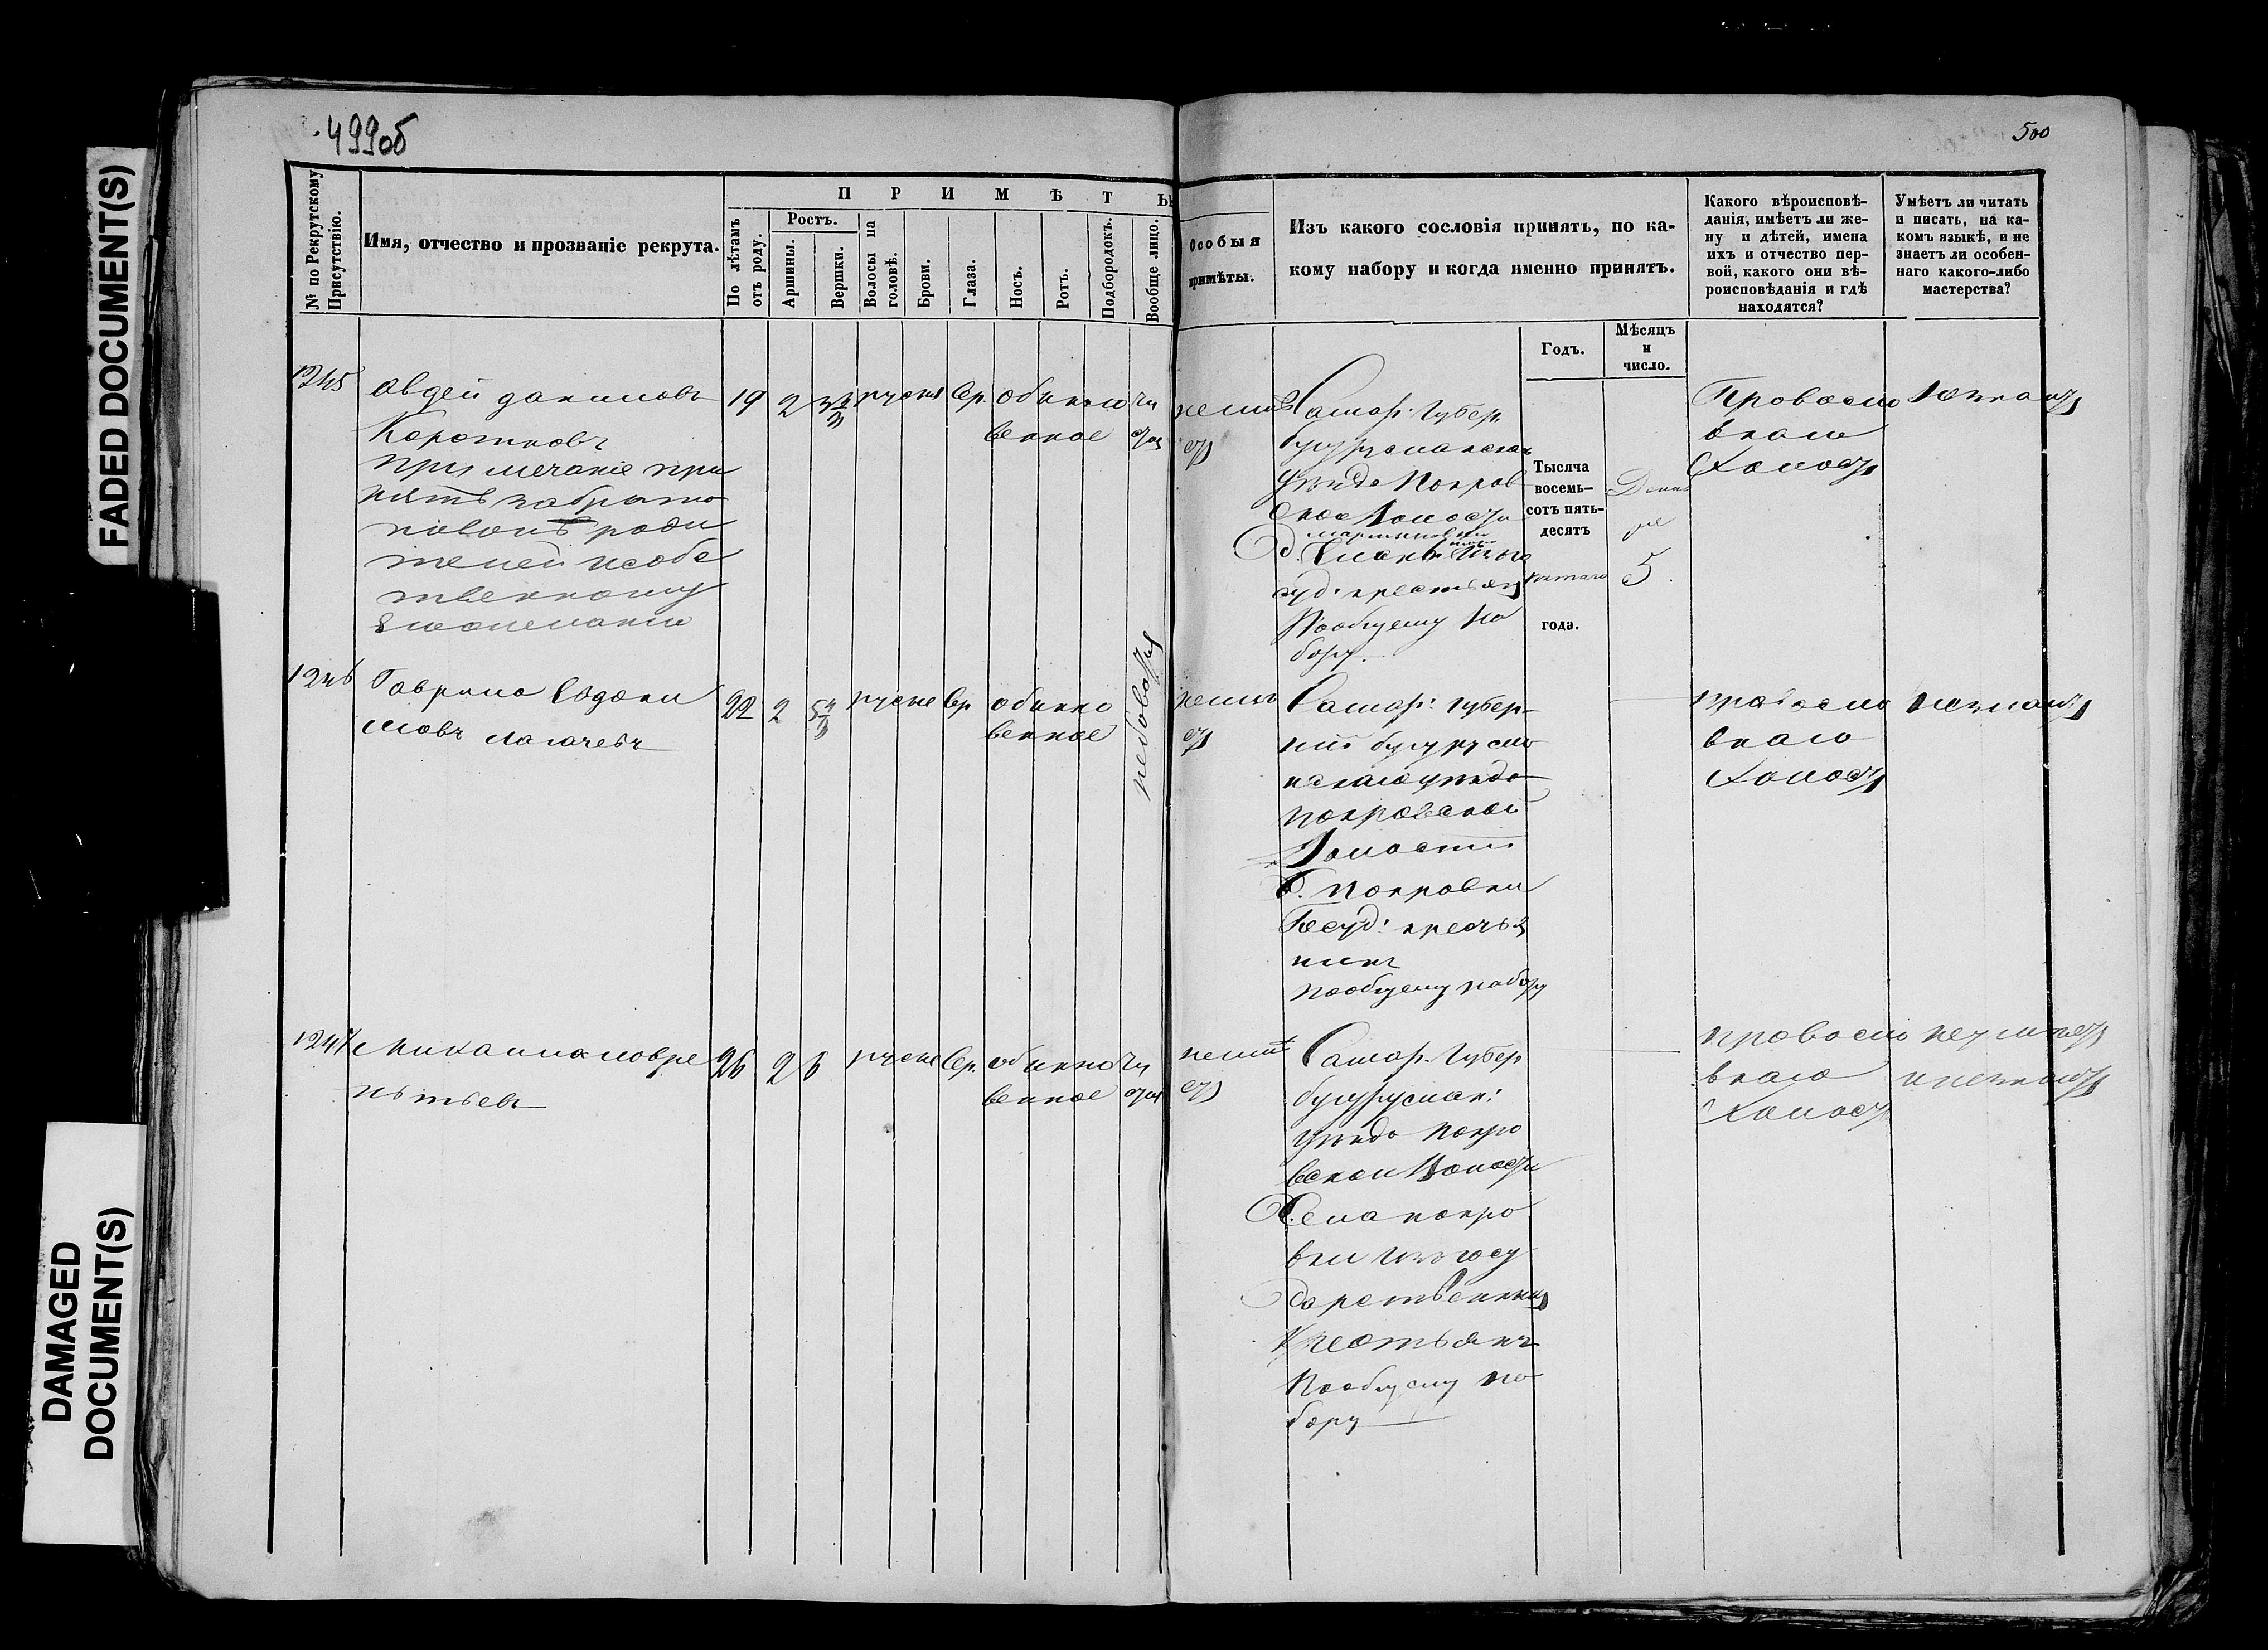 FADED DOCUMENT(S)
DAMAGED
DOCUMENT(S)
499об
500
№ по Рекрутскому
Присутствію.
Имя, отчество и прозваніе рекрута.
П Р И М Ѣ Т Ы
По лѣтамъ
отъ роду.
Ростъ.
Аршины.
Вершки.
Волосы на
головѣ.
Брови.
Глаза.
Носъ.
Ротъ.
Подбородокъ.
Вообще лицо.
Особыя
примѣты.
Изъ какого сословія принятъ, по ка-
кому набору и когда именно принятъ.
Годъ.
Мѣсяцъ
и
число.
Какого вѣроисповѣ-
данія, имѣетъ ли же-
ну и дѣтей, имена
ихъ и отчество пер-
вой, какого они вѣ-
роисповѣданія и гдѣ
находятся?
Умѣетъ ли читать
и писать, на ка-
комъ языкѣ, и не
знаетъ ли особен-
наго какого-либо
мастерства?
Тысяча
восемь-
сотъ пять-
десятъ
пятаго
года.
1245
Авдей Даниловъ
Коротковъ
Примечаніе при
нятъ за брата
роди
телей и собс
твенному
желанию
19 2 3 русыя Сер. обыкно
венное
чи
стое
неимѣ
етъ
Самар: Губер.
бугурусланскаго
уѣзда Покров
ской Волости
Мартыновки
суд: крестьянъ
Пообщему на
бору.
Декаб
ря
5.
Православ
наго
Холостъ
незнаетъ
1246
Гаврила Евдоки
мовъ
22 2 5 русые Сер обыкно
венное
рябоватое
неимѣ
етъ
Самар: губер-
нии бугурусла
нскаго уѣзда
покровской
Волости
д. покровки
Госуд: крестья
нинъ
пообщему набору
православ
наго
Холостъ
незнаетъ
1247
Михаила лавре
нтьевъ
26 2 6 русые Сер. обыкно
венное
чи
стое
неимѣ
етъ
Самар. Губер
бугуруслан:
уѣзда покро
вской Волости
Села покро
вки изъ госу
дарственныхъ
Крестьянъ
Пообщему на
бору
православ
наго
Холостъ
неумѣетъ
и незнаетъ